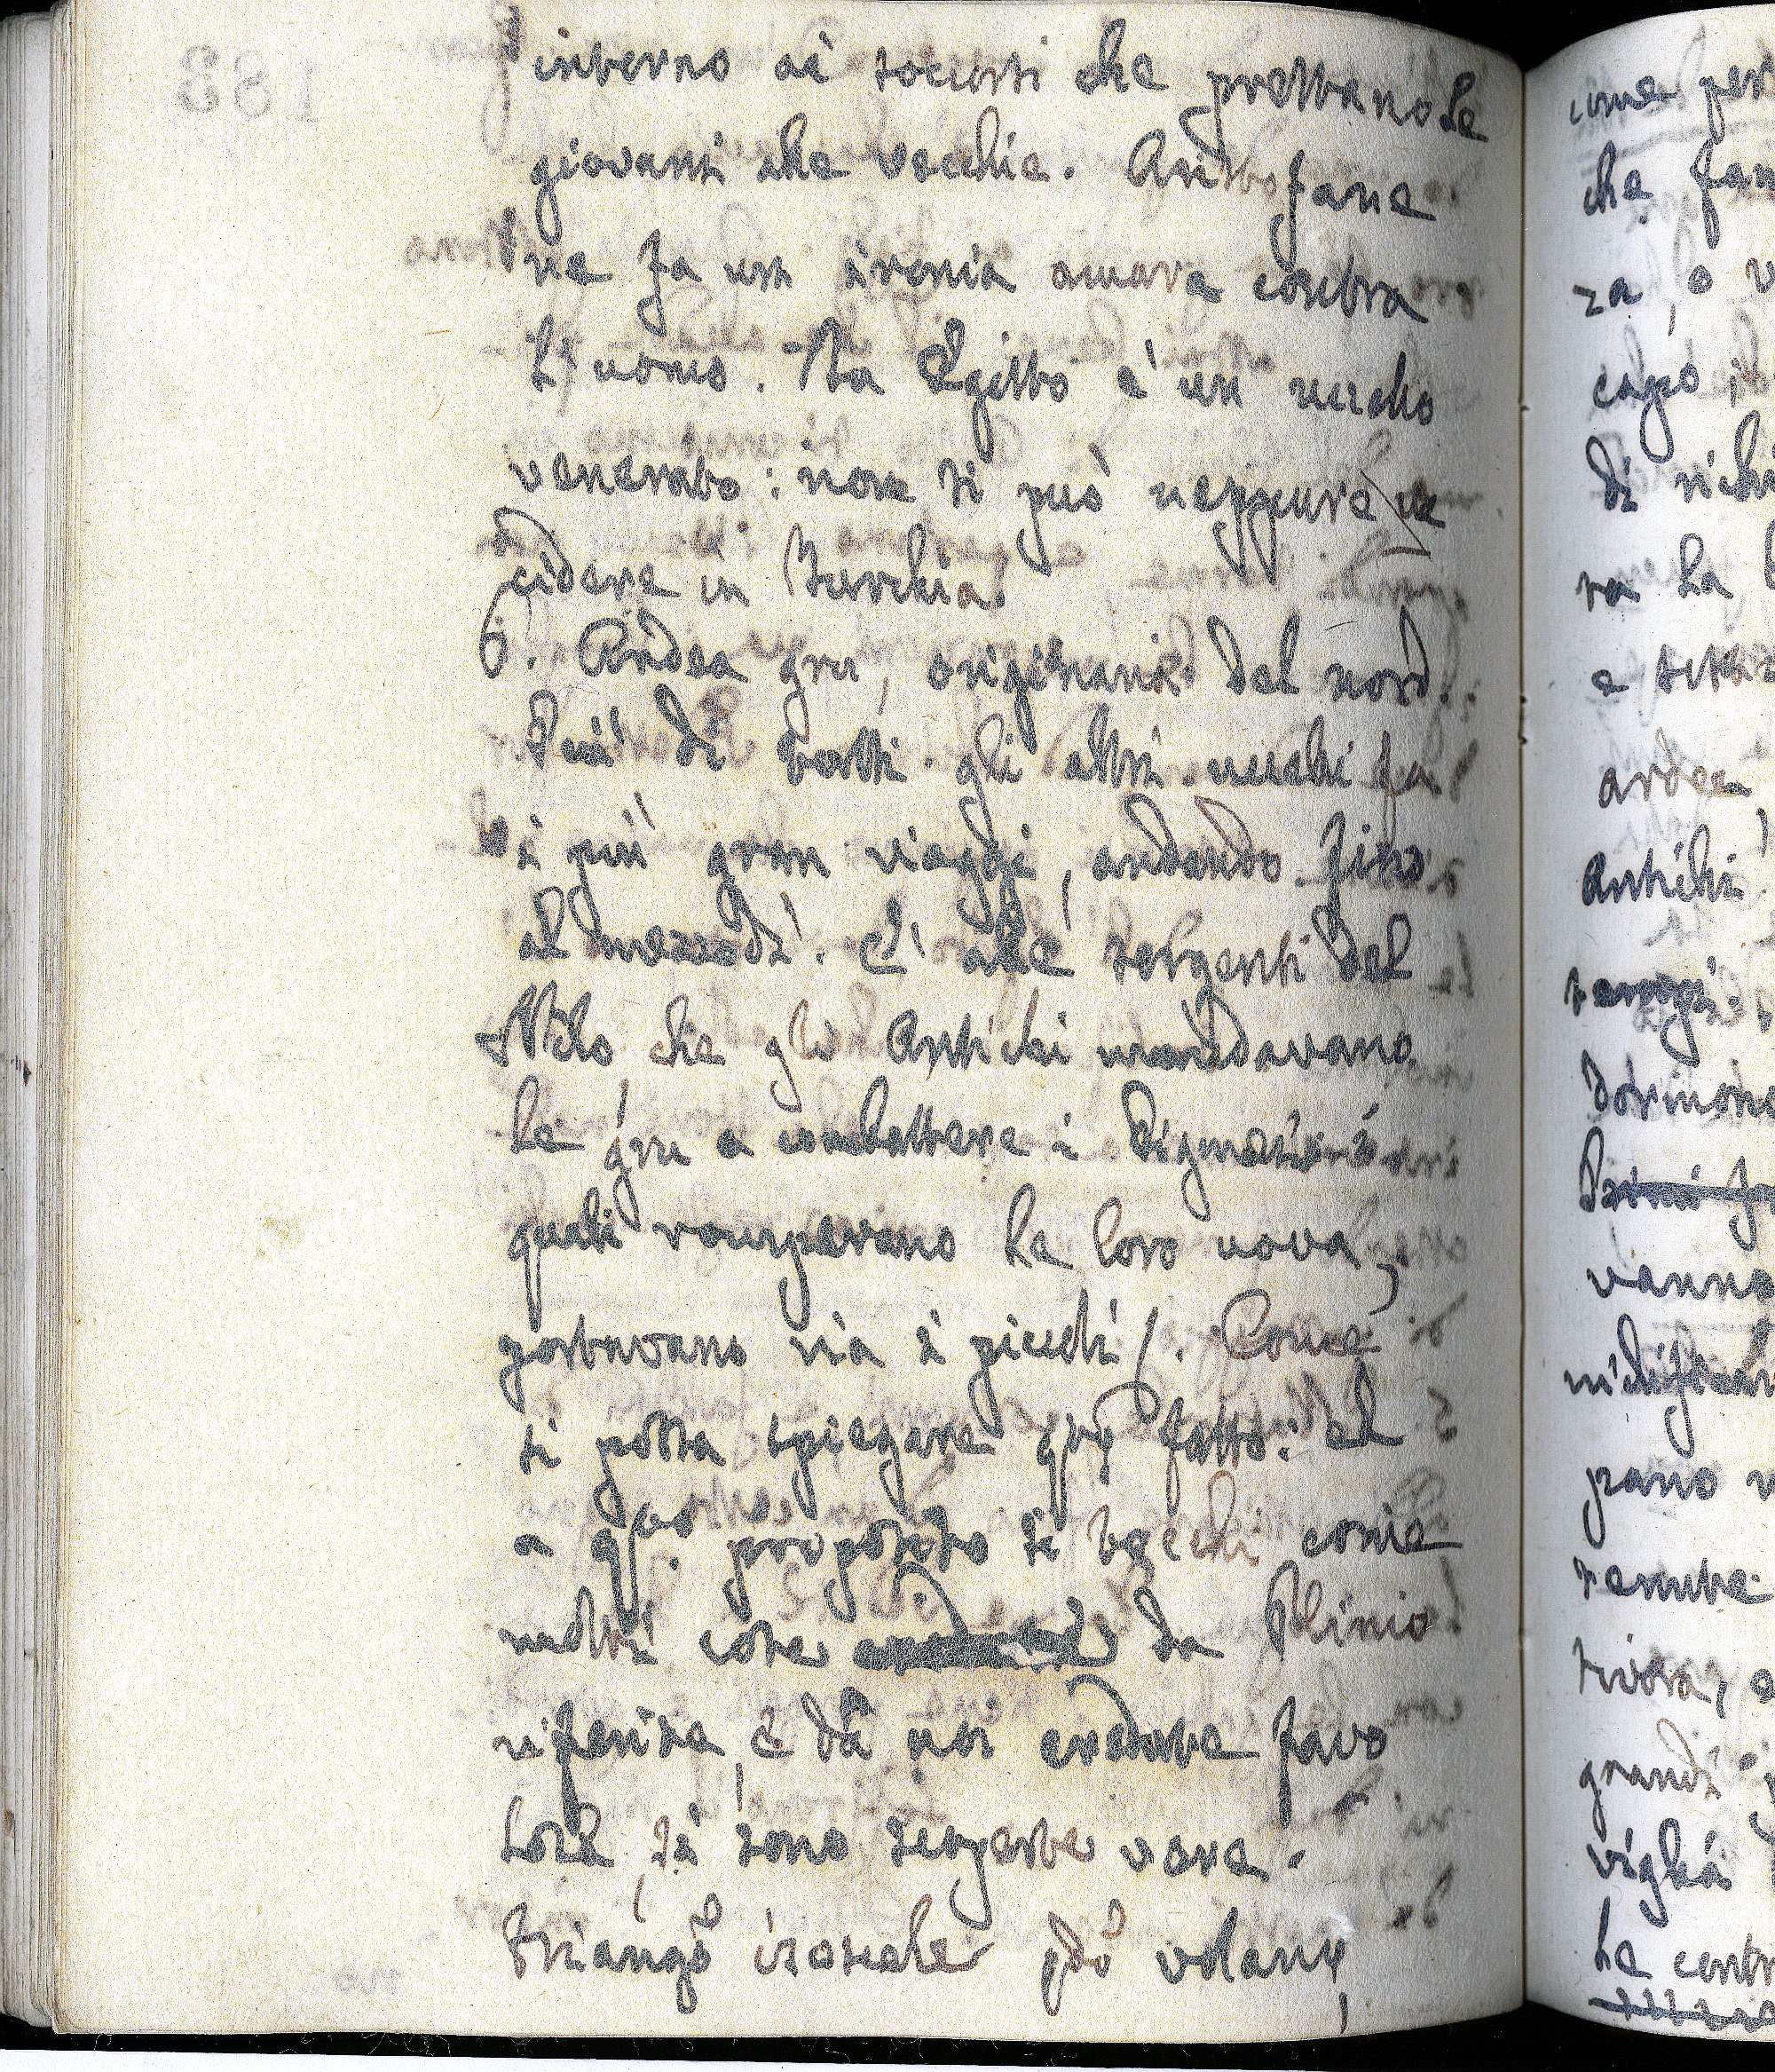 interno ai soccorsi che prestano le
giovani alle vecchie. Aristofane
ne fa un ironia amara contra
l'uomo. In Egitto è un uccello
venerato: non si può neppure uc
cidere in Turchia.
6. Ardea gru, originaria del nord.
Più di tutti gli altri uccelli fa
i più gran viaggi, andando fino
al mezzodì. È alle sorgenti del
Nilo che gli Antichi mandavano
le gru a combattere i Pigmei i
quali rompevano le loro uova,
portavano via i piccoli/. Come
si possa spiegare fatto: al
a proposito si tocchi come
molti cose da Plinio
riferite, e da noi credute favo
lose, si sono scoperte vere.
Triango isoscele volano,
come per
che fan
za, o v
capo, i
di richi
ra la
e
ardea
Antichi

dormono

vanno
nidifican
pano v

grandi
viglia
le contr